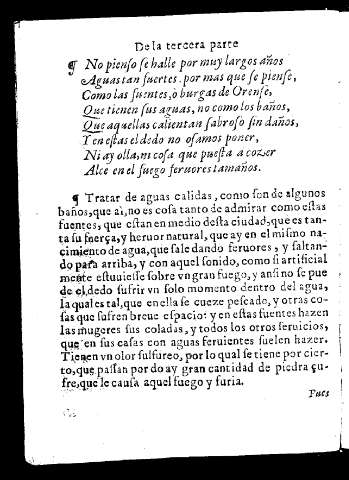 De la tercera parte
¶ No pienso se halle por muy largos años
Aguas tan fuertes. por mas que se piense,
Como las fuentes, ò burgas de Orense,
Que tienen sus aguas, no como los baños,
Que aquellas calientan sabroso sin daños,
Y en estas el dedo no osamos poner,
Ni ay olla, ni cosa que puesta a cozer
Alce en el fuego feruores tamaños.
¶ Tratar de aguas calidas, como son de algunos
baños, que ai, no es cosa tanto de admirar como estas
fuentes, que estan en medio desta ciudad, que es tan-
ta su fuerça, y heruor natural, que ay en el mismo na-
cimiento de agua, que sale dando feruores, y saltan-
do para arriba, y con aquel sonido, como si artificial
mente estuuiesse sobre vn gran fuego, y ansi no se pue
de el dedo sufrir vn solo momento dentro del agua,
la qual es tal, que en ella se cueze pescado, y otras co-
sas que sufren breue espacio: y en estas fuentes hazen
las mugeres sus coladas, y todos los otros seruicios,
que en sus casas con aguas feruientes suelen hazer.
Tienen vn olor sulfureo, por lo qual se tiene por cier-
to, que passan por do ay gran cantidad de piedra çu-
fre, que le causa aquel fuego y furia.
Pues